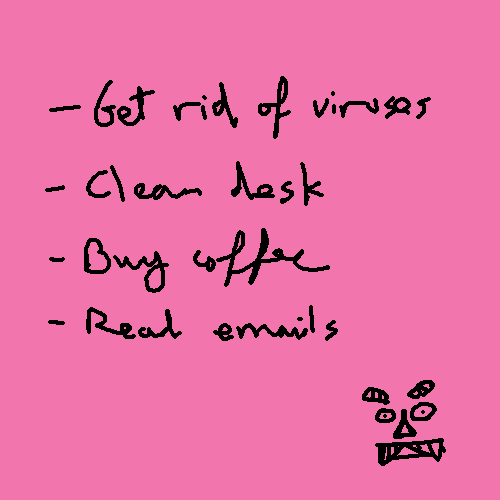 - Get rid of viruses
- Clean desk
- Buy coffee
- Read emails